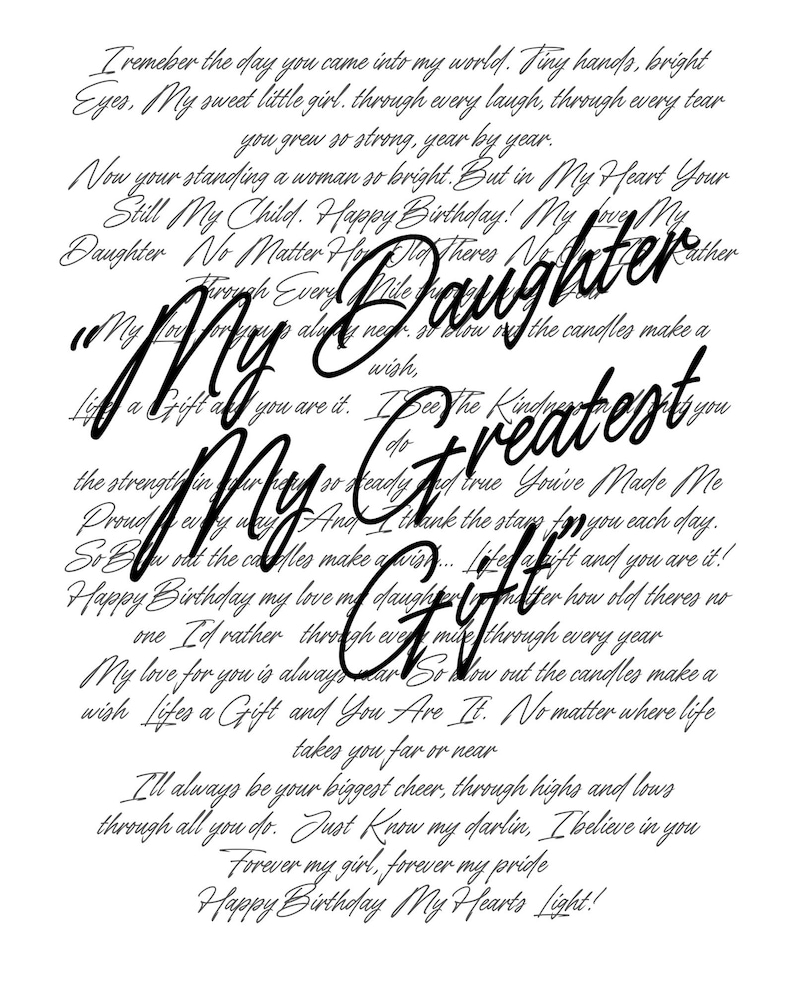 I remeber the day you came into my world. Tiny hands, bright
Eyes, My sweet little girl. through every laugh, through every tear
you grew so strong, year by year.
Now your standing a woman so bright. But in My Heart Your
Still My Child. Happy Birthday! My Love My
Daughter No Matter How Old Theres No One I'd Rather
Through Every Mile through every Year
"My Daughter
My Love for you is always near. so blow out the candles make a
wish,
Lifes a Gift and you are it. I See The Kindness in all that you
do
My Greatest
the strength in your heart so steady and true You've Made Me
Proud in every way, And I thank the stars for you each day.
So Blow out the candles make a wish... Lifes a gift and you are it!
Gift"
Happy Birthday my love my daughter no matter how old theres no
one I'd rather through every mile through every year
My love for you is always near So blow out the candles make a
wish Lifes a Gift and You Are It. No matter where life
takes you far or near
I'll always be your biggest cheer, through highs and lows
through all you do. Just Know my darlin, I believe in you
Forever my girl, forever my pride
Happy Birthday My Hearts Light!